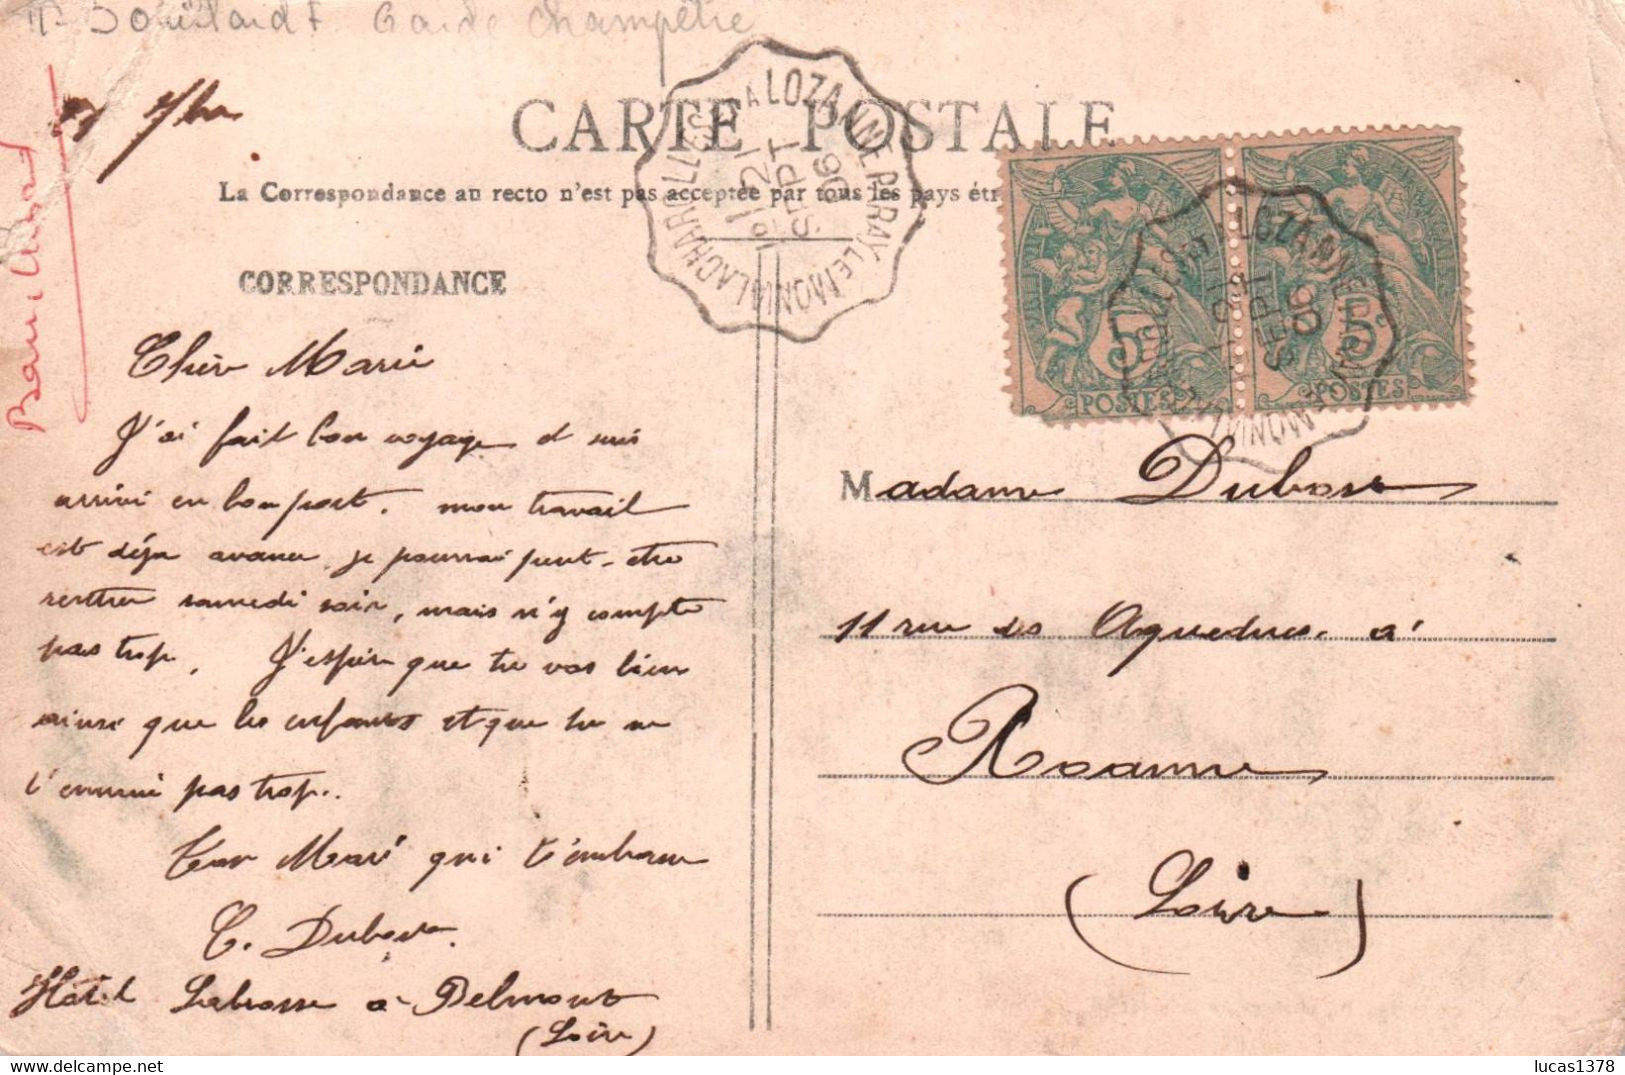 Garde champêtre
CARTE POSTALE
La Correspondance au recto n'est pas acceptée par tous les pays étr
LOZANNE
PARAY LE MONIAL
21
SEPT
06
LOZANNE
SEPT
06
5c
5c
POSTES
POSTES
CORRESPONDANCE
Chère Marie
J'ai fait bon voyage et suis
arrivé en bon port. mon travail
est déjà avancé. je pourrai peut-etre
rentrer samedi soir, mais n'y compte
pas trop. J'espère que tu vas bien
ainsi que les enfants et que tu ne
t'ennui pas trop.
Ton Mari qui t'embrasse
C. Dubost
Hôtel Labrosse à Belmont
(Loire)
Madame Dubost
11 rue des Aqueducs. à
Roanne
(Loire)
lucas1378